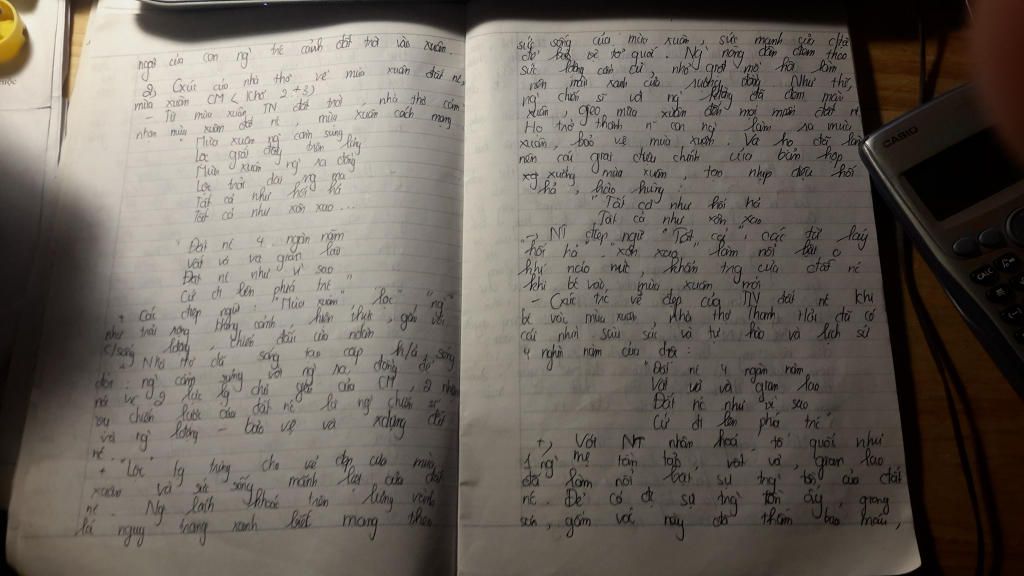 ngợi của con ng' trc cảnh đất trời vào xuân.
2, Cxúc của nhà thơ về mùa xuân đất nc,
mùa xuân CM (khổ 2+3)
- Từ mùa xuân TN đất trời, nhà thơ cảm
nhận mùa xuân đất nc, mùa xuân cách mạng
"Mùa xuân ng' cầm súng
Lộc giắt đầy trên lưng
Mùa xuân ng' ra đồng
Lộc trải dài ng mạ
Tất cả như hối hả
Tất cả như xôn xao...
Đất nc 4 ngàn năm
Vất vả và gian lao
Đất nc như vì sao
Cứ đi lên phía trc"
+ Các điệp ngữ: "Mùa xuân" "lộc" "ng'"
như trải rộng khung cảnh hiện thực, gắn với
c/sống lđộng, chiến đấu của ndân
+ Nhà thơ đã sáng tạo cặp h/ả sóng
đôi: ng' cầm súng và ng' ra đồng để
nói về 2 lực lg chủ yếu của CM, 2 nhiệm
vụ chiến lược của đất nc là ng' chiến sĩ
và ng' lđộng - bảo vệ và xdựng đất
nc.
+ "Lộc" tg trưng cho vẻ đẹp của mùa
xuân và sức sống mãnh liệt của đất
nc. Ng' lính khoác trên lưng vành
lá nguỵ trang xanh biếc mang theo
sức sống của mùa xuân, sức mạnh của
để bảo vệ tổ quốc. Ng' nông dân đem theo
sức lđộng cần cù, nhỏ giọt mồ hôi làm
nên màu xanh của ruộng đồng. Như thế,
ng' chiến sĩ và ng' lđộng đã đem mùa
xuân, gieo mùa xuân đến mọi miền đất nc.
Họ trở thành n~ con ng' làm ra mùa
xuân, bảo vệ mùa xuân. Và họ đã làm
nên cái giai điệu chính của bản hợp
xg xướng mùa xuân, tạo nhịp điệu hối
hả, hào hùng:
"Tất cả như hối hả
Tất cả như xôn xao
-> NT điệp ngữ "Tất cả", các từ láy
"hối hả" "xôn xao" làm nổi bật o
khí náo nức, khẩn trg của đất nc
khi bc vào mùa xuân mới
- Cxúc trc vẻ đẹp của TN đất nc khi
bc vào mùa xuân, nhà thơ Thanh Hải đã có
cái nhìn sâu sắc và tự hào về lịch sử
4 nghìn năm của dtộc:
"Đất nc 4 ngàn năm
Vất vả và gian lao
Đất nc như vì sao
Cứ đi lên phía trc"
+, Với NT nhân hoá tổ quốc như
1 ng' mẹ tảo tần, vất vả, gian lao
đã làm nổi bật sự trg tồn của đất
nc. Để có đc sự trg tồn ấy, giang
sơn, gấm vóc này đã thấm bao máu,
CASIO